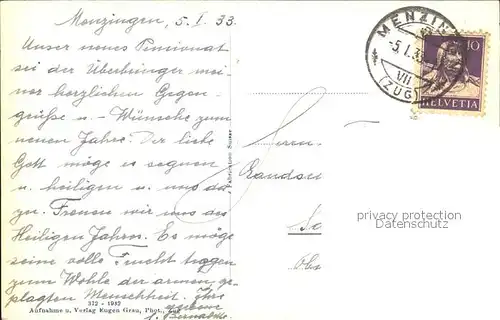 Menzingen, 5. I. 33.
Unser neues Pensionat
sei der Überbringer mei-
ner herzlichen Gegen-
grüße u. - Wünsche zum
neuen Jahre. Der liebe
Gott möge es segnen
u. heiligen u. uns da-
zu. Freuen wir uns des
Heiligen Jahres. Es möge
seine volle Frucht tragen
zum Wohle der armen, ge-
plagten Menschheit. Ihre
372 - 1932
Aufnahme u. Verlag Eugen Grau, Phot., Zug
MENZI
-5.I.33
VII
(ZUG)
10
HELVETIA
Herrn
Landscu
privacy protection
Datenschutz